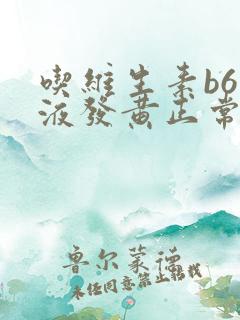 喫維生素b6
液發黃正常
鲁尔蒙德
未经同意禁止转载